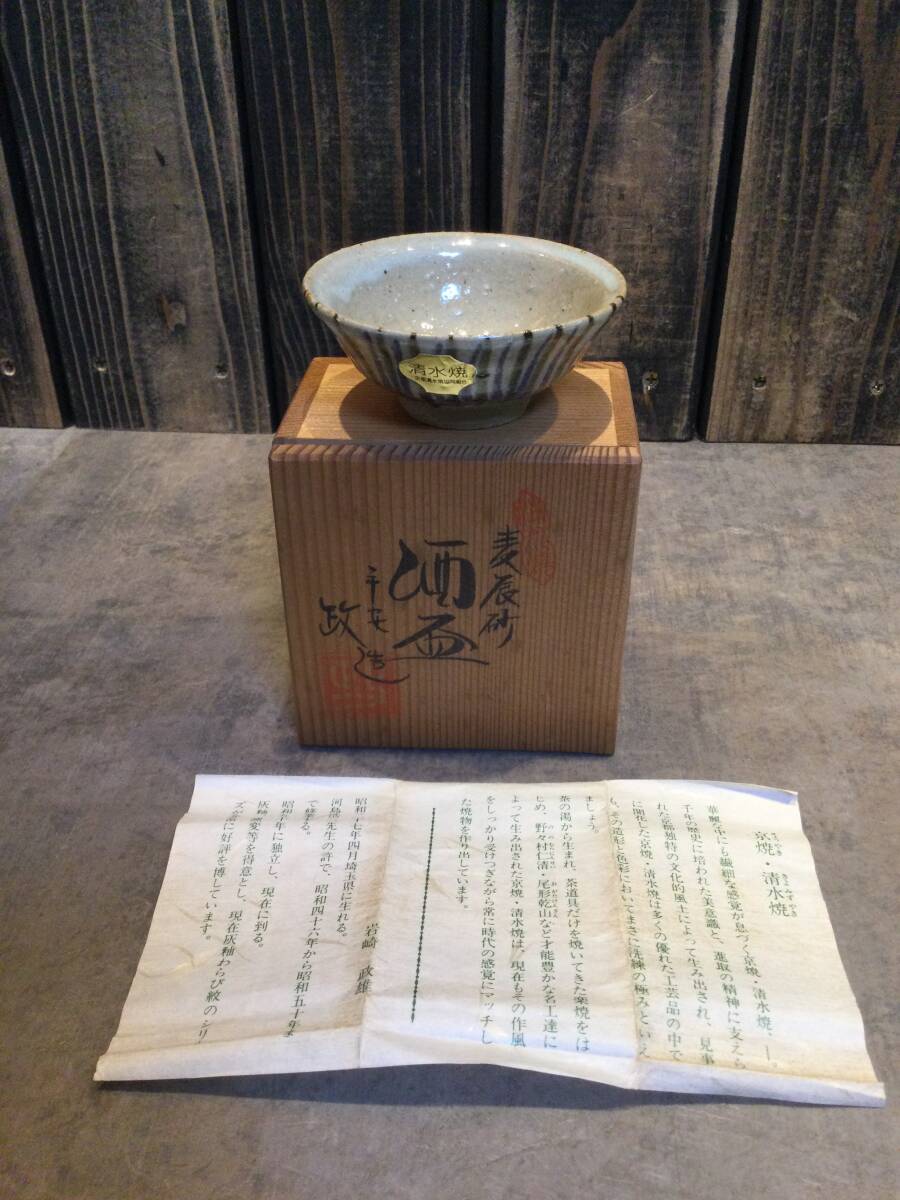 清水焼
麦辰砂
酒盃
平安
政造
京焼・清水焼
きょうやき
きよみずやき
華麗な中にも繊細な感覚が息づく京焼・清水焼、―。
千年の歴史に培われた美意識と、進取の精神に支えら
れた京都独特の文化的風土によって生み出され、見事
に開花した京焼・清水焼は多くの優れた工芸品の中で
も、その造形と色彩においてまさに洗練の極みといえ
ましょう。
茶の湯から生まれ、茶道具だけを焼いてきた楽焼をは
じめ、野々村仁清・尾形乾山など才能豊かな名工達に
よって生み出された京焼・清水焼は、現在もその作風
をしっかり受けつぎながら常に時代の感覚にマッチし
た焼物を作り出しています。
岩崎 政雄
昭和 十七年四月埼玉県に生れる。
河島 先生の許で、昭和四十六年から昭和五十年ま
で修業る。
昭和 年に独立し、現在に到る。
灰釉 窯変等を得意とし、現在灰釉からび紋のシリ
ーズが に好評を博しています。